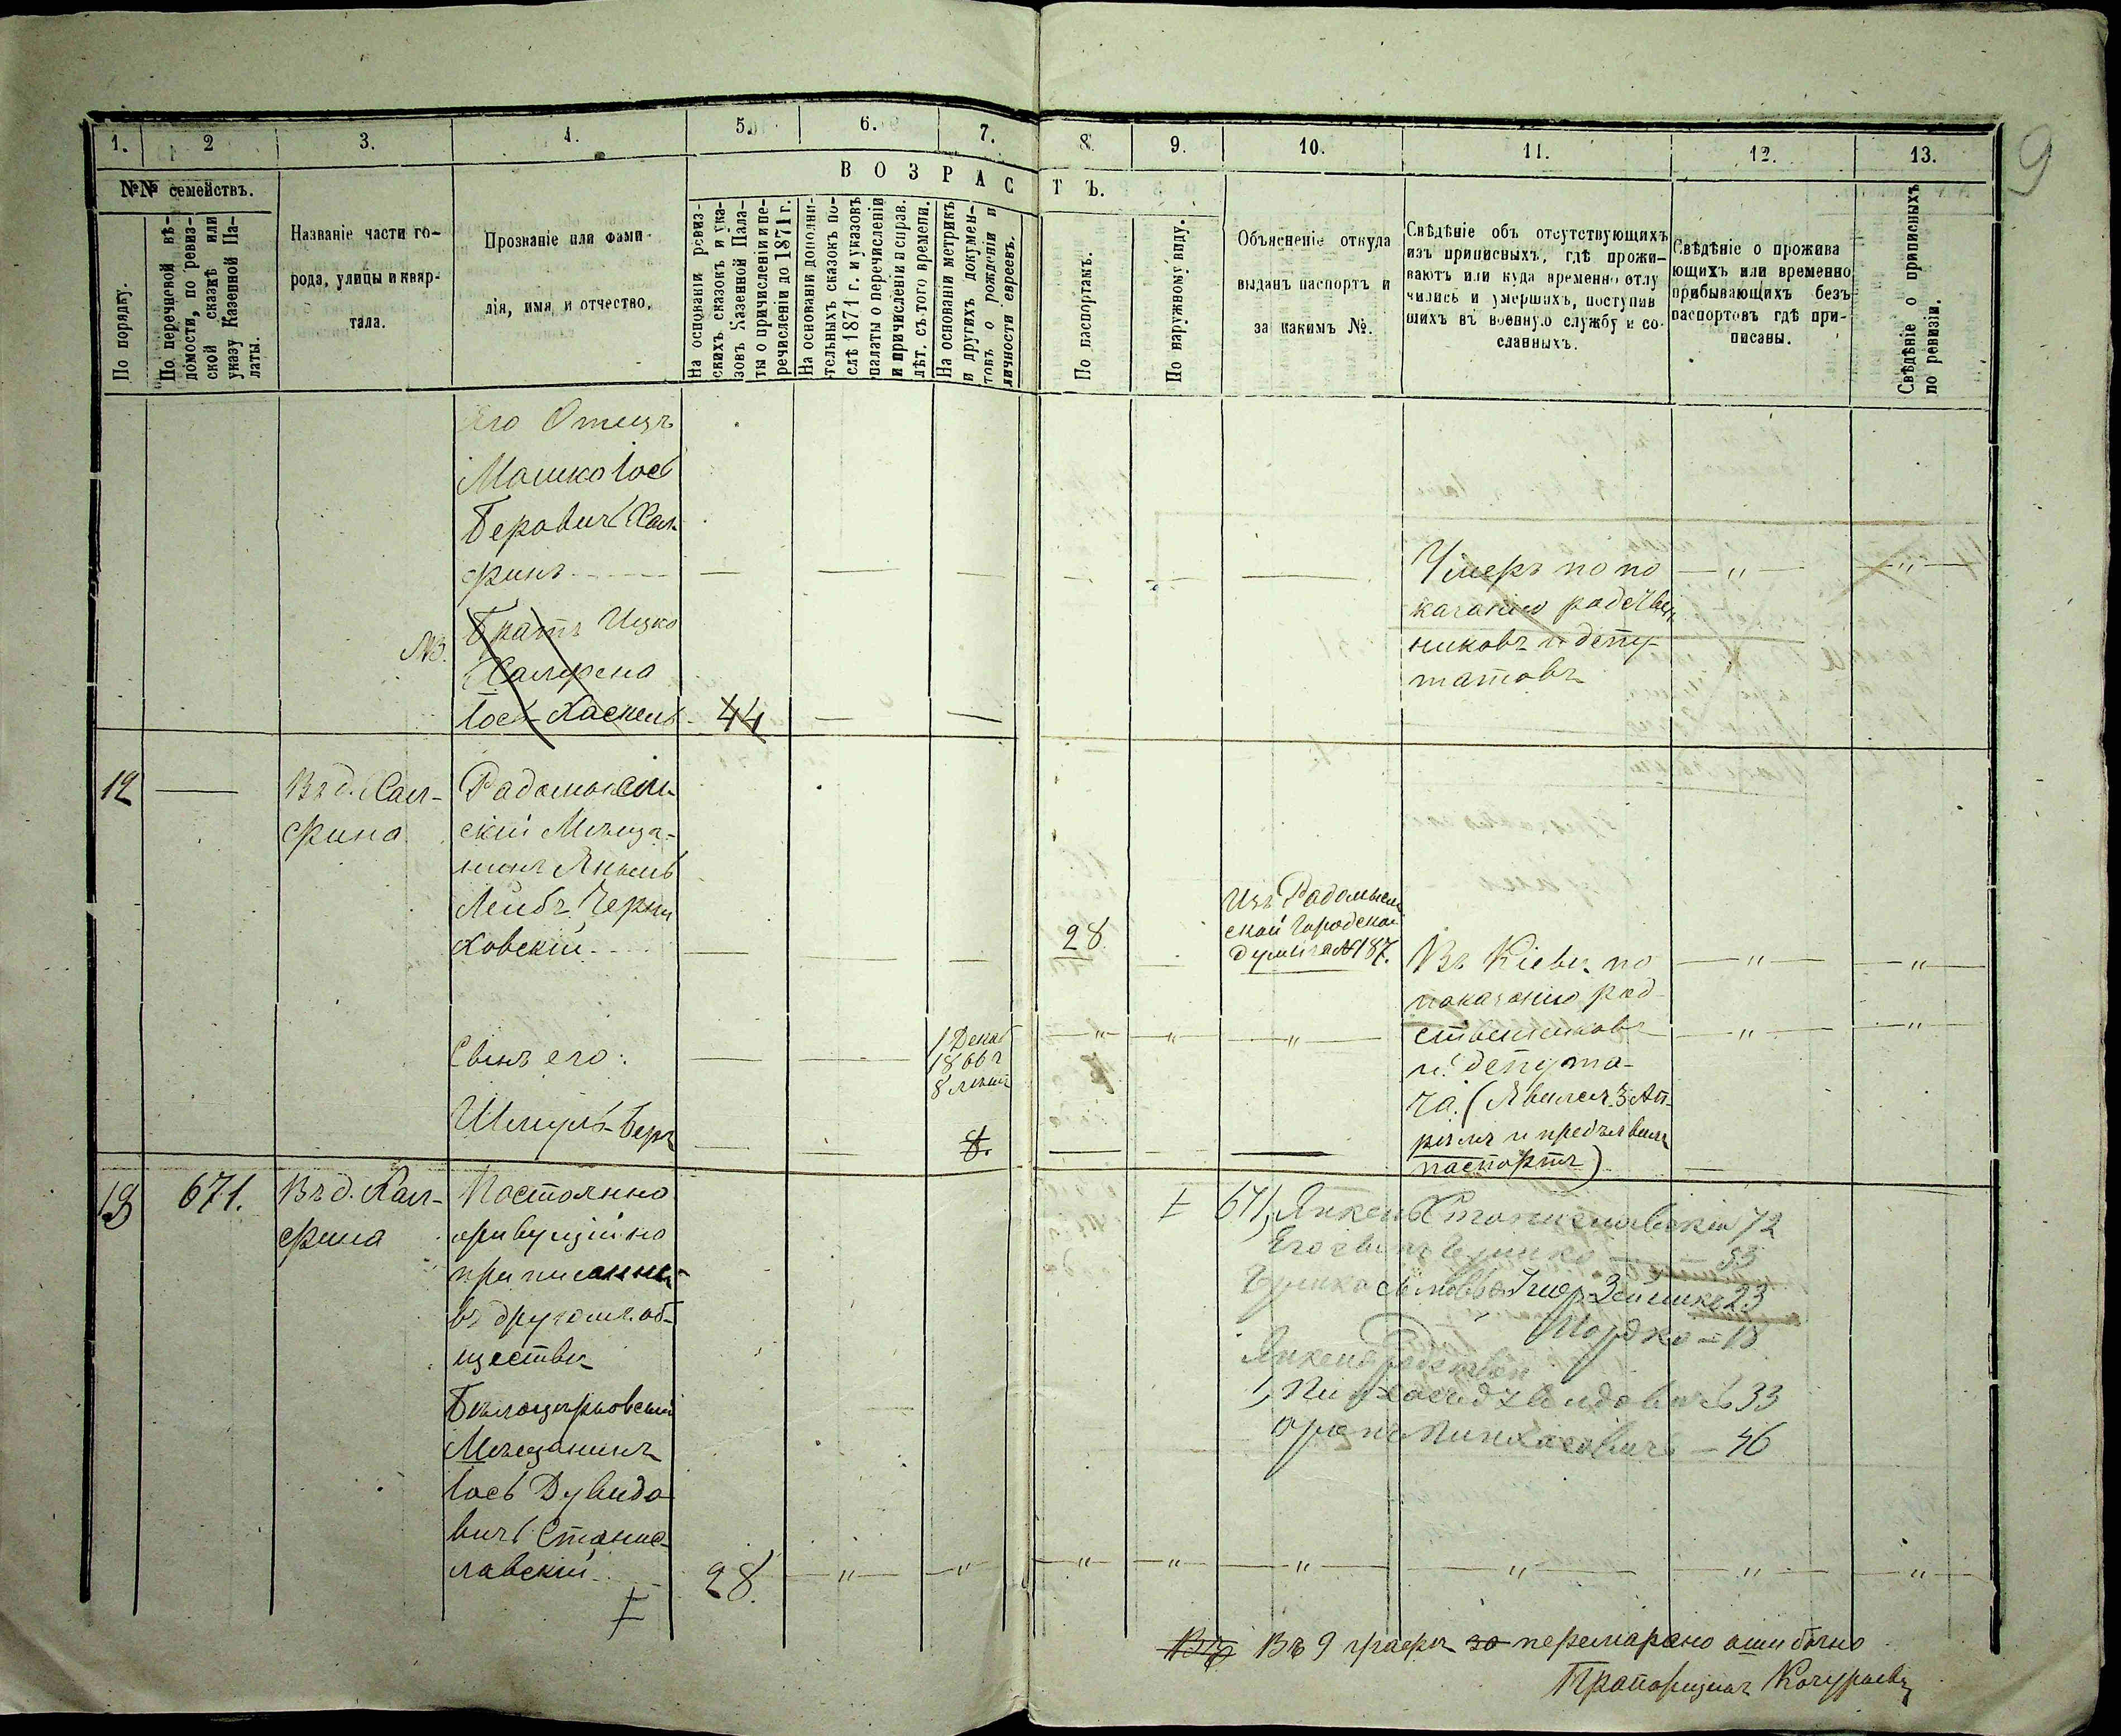 9
1. 2 3. 4. 5. 6. 7. 8. 9. 10. 11. 12. 13.
ВОЗРАСТЪ.
№№ семействъ.
По порядку.
По перечневой вѣ-
домости, по ревиз-
ской сказкѣ или
указу Казенной Па-
латы.
Названіе части го-
рода, улицы и квар-
тала.
Прозваніе или фами-
лія, имя и отчество.
На основаніи ревиз-
скихъ сказокъ и ука-
зовъ Казенной Пала-
ты о причисленіи и пе-
речисленіи до 1871 г.
На основаніи дополни-
тельныхъ сказокъ по-
слѣ 1871 г. и указовъ
палаты о перечисленіи
и причисленіи справ.
лѣт. съ того времени.
На основаніи метрикъ
и другихъ докумен-
товъ о рожденіи и
личности евреевъ.
По паспортамъ.
По наружному виду.
Объясненіе откуда
выданъ паспортъ и
за какимъ №.
Свѣдѣніе объ отсутствующихъ
изъ приписныхъ, гдѣ прожи-
ваютъ или куда временно отлу
чились и умершихъ, поступив
шихъ въ военную службу и со-
сланныхъ.
Свѣдѣніе о прожива
ющихъ или временно
прибывающихъ безъ
паспортовъ гдѣ при-
писаны.
Свѣдѣніе о приписныхъ
по ревизіи.
Его Отецъ
Мошко Іось
Беровичъ Хал-
финъ
Умеръ по по
казанію родствен
никовъ и депу-
татовъ
Братъ Ицко
Халфена
Іось-Хаскель 44
12 Въ д. Хал-
фина
Радомысль-
скій Мѣща-
нинъ Янкель
Лейбъ Черня
ховскій
28
Изъ Радомысль
ской Городской
думы за № 187.
Въ Кіевѣ по
показанію род-
ственниковъ
и депута-
та. (Явился 3 Ап-
рѣля и предъявилъ
паспортъ)
Сынъ его:
Шмуль-Беръ
1 Декаб
1866 г
8 лѣтъ
8.
13 671. Въ д. Хал-
фина
Постоянно
живущій но
приписанный
въ другомъ об-
ществѣ
Бѣлоцерковскій
Мѣщанинъ
Іось Дувидо
вичъ Станис-
лавскій 28.
671, Янкель Станиславскій 72
Его сынъ 53
23
Мордко – 18
Янкеля
1, 33
Пинхасовичъ – 46
Въ 9 графѣ за перемарано ошибочно
Прапорщикъ